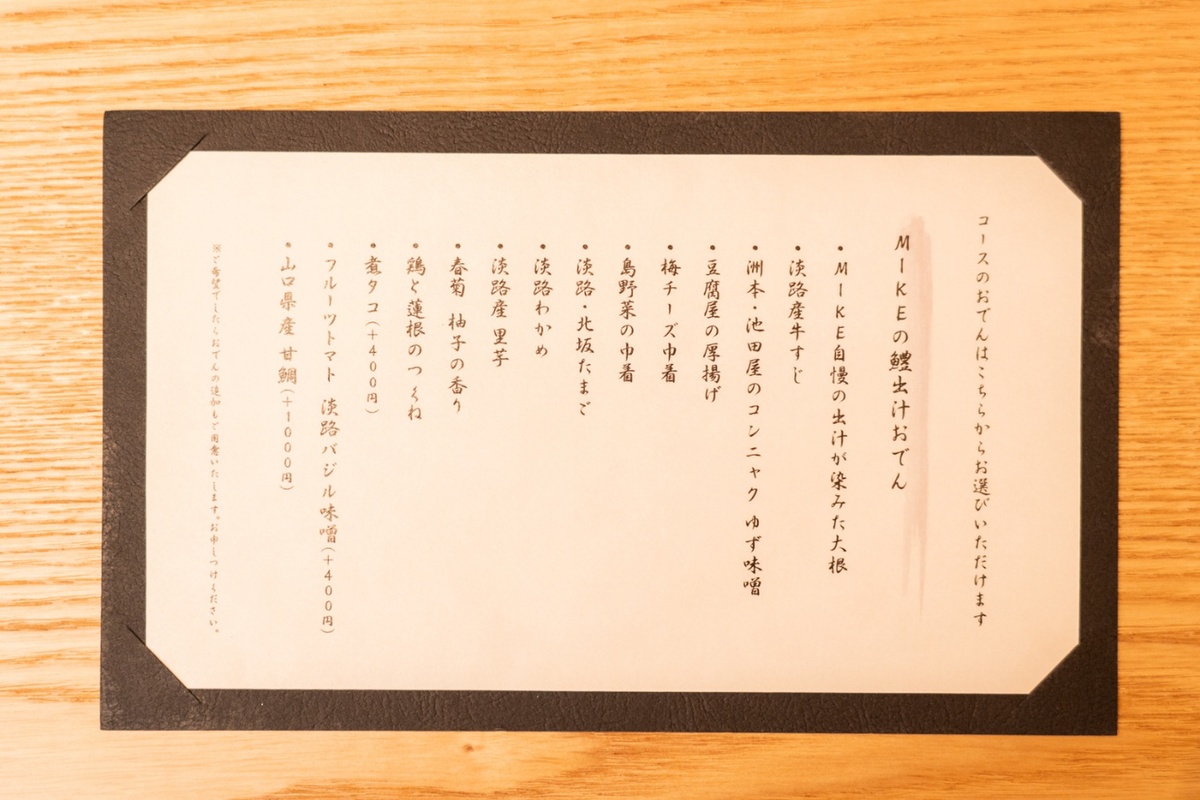 コースのおでんはこちらからお選びいただけます
MIKEの鱧出汁おでん
・MIKE自慢の出汁が染みた大根
・淡路産牛すじ
・洲本・池田屋のコンニャク ゆず味噌
・豆腐屋の厚揚げ
・梅チーズ巾着
・島野菜の巾着
・淡路・北坂たまご
・淡路わかめ
・淡路産 里芋
・春菊 柚子の香り
・鶏と蓮根のつくね
・煮タコ(+400円)
・フルーツトマト 淡路バジル味噌(+400円)
・山口県産 甘鯛(+1000円)
※ご希望でしたらおでんの追加もご用意いたします。お申しつけください。